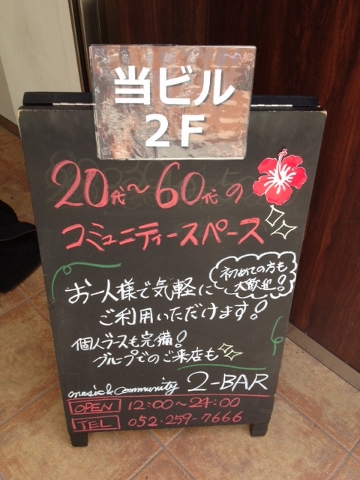 当ビル
2F
20代～60代の
コミュニティースペース
初めての方も
大歓迎!
お一人様で気軽に
ご利用いただけます!
個人ブースも完備!
グループでのご来店も
music & Community 2-BAR
OPEN 12:00～24:00
TEL 052-259-7666